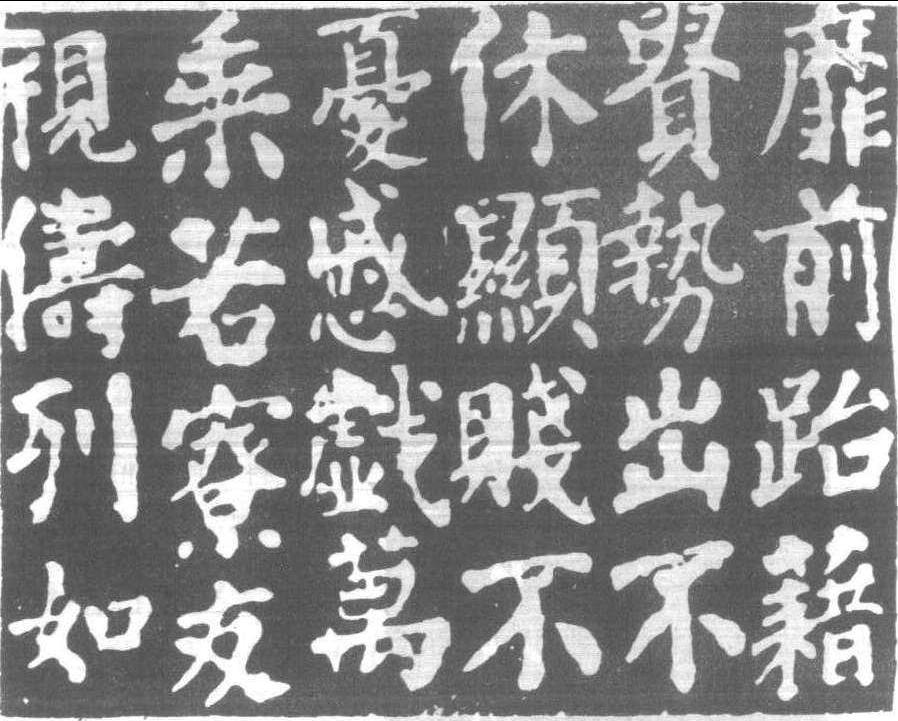 靡前跆藉
貴勢出不
休顯賤不
憂慼戲萬
乘若寮友
視儔列如